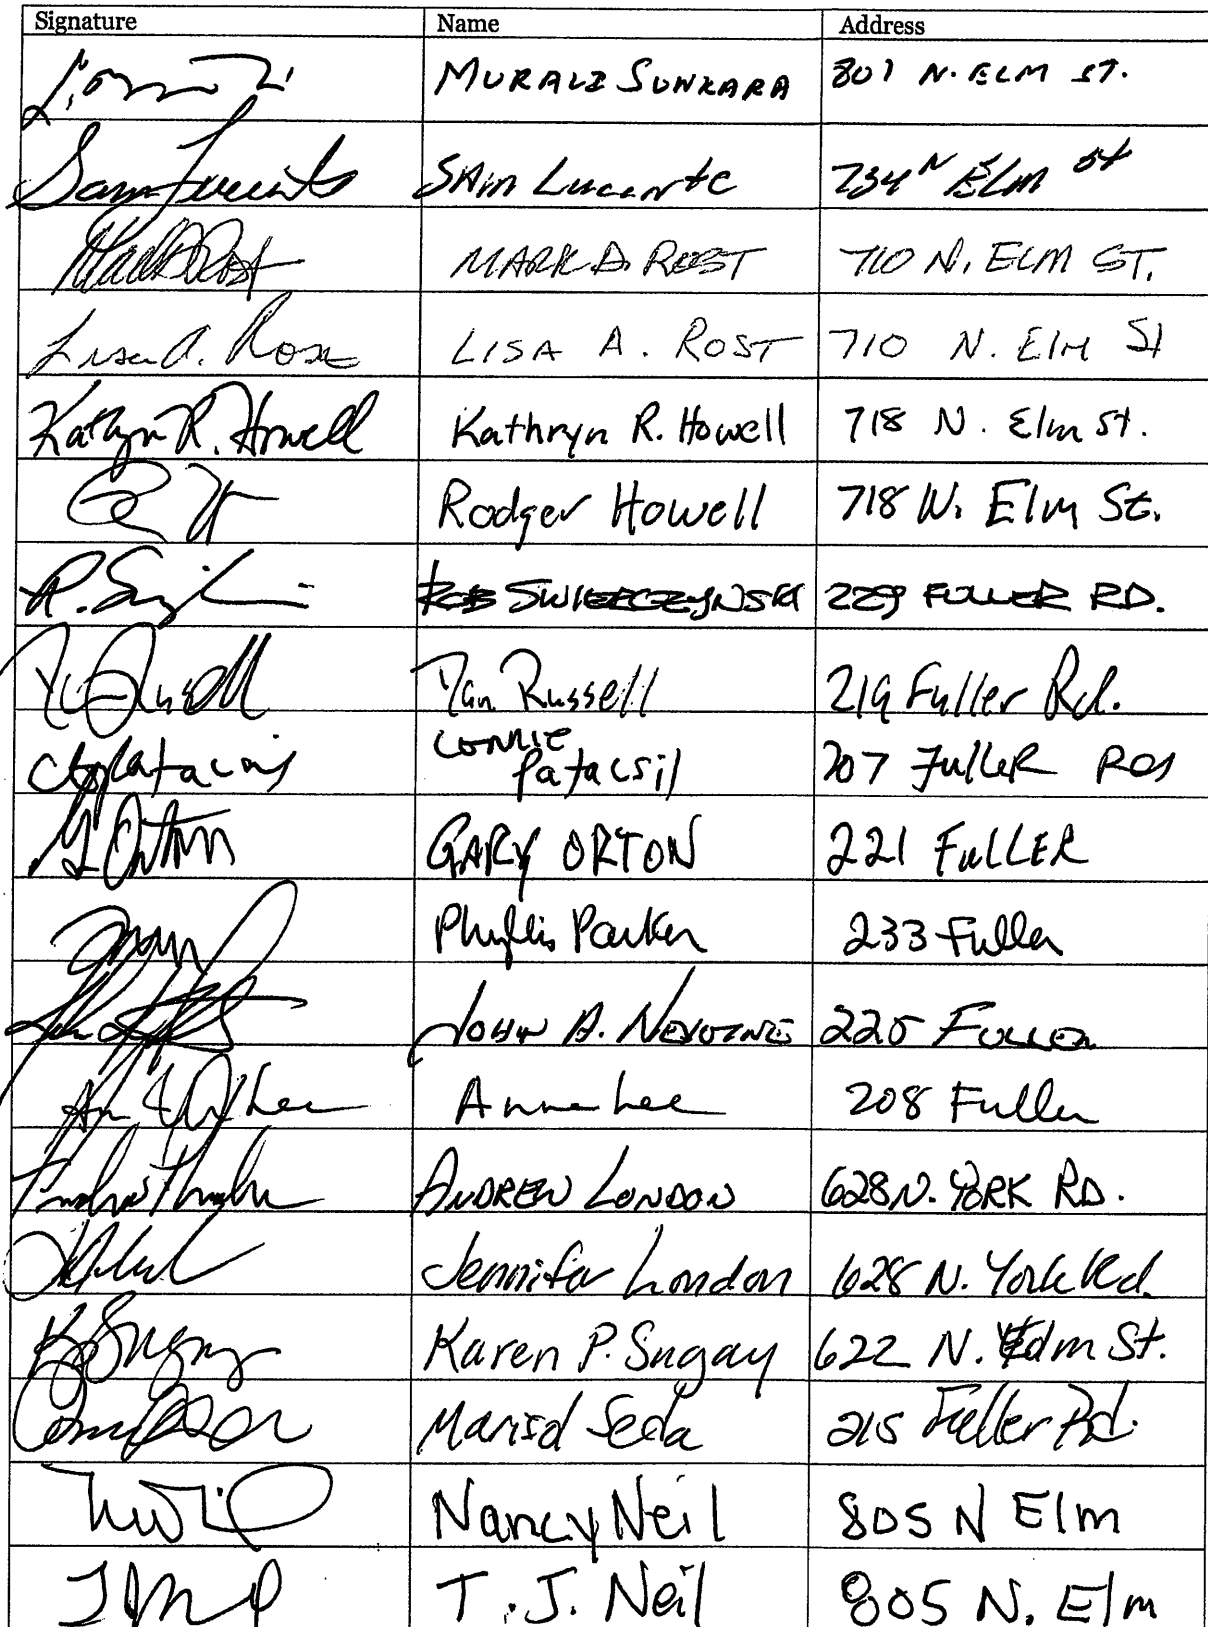 Signature Name Address
MURALI SUNKARA 801 N. ELM ST.
Sam Lucente SAm Lucente 734 N ELM St
Mark D Rost MARK D. ROST 710 N. ELM ST.
Lisa A. Rost LISA A. ROST 710 N. Elm St
Kathryn R. Howell Kathryn R. Howell 718 N. Elm St.
Rodger Howell 718 N. Elm St.
ROB SWIERCZYNSKI 229 FULLER RD.
Dan Russell 219 Fuller Rd.
CONNIE
Patacsil 207 FulleR RD
GARY ORTON 221 FulLER
Phyllis Parker 233 Fuller
JOHN A. 225 FULLER
Lee Anne Lee 208 Fuller
ANDREW LONDON 628 N. YORK RD.
Jennifer London 628 N. York Rd.
Karen P. Sugay 622 N. Elm St.
Seda 215 Fuller Rd.
Nancy Neil 805 N Elm
T. J. Neil 805 N. Elm